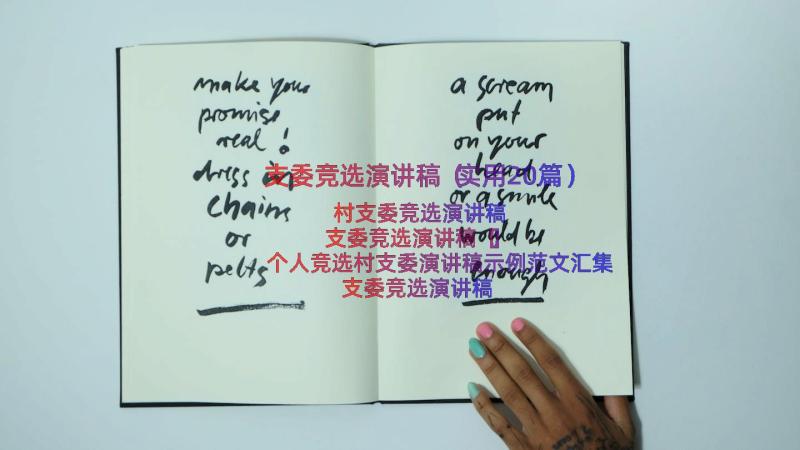 make your
promise
real!
dress in
chains
or
pelts
a scream
put
on your
head
or a smile
would be
enough
支委竞选演讲稿（实用20篇）
村支委竞选演讲稿
支委竞选演讲稿
个人竞选村支委演讲稿示例范文汇集
支委竞选演讲稿